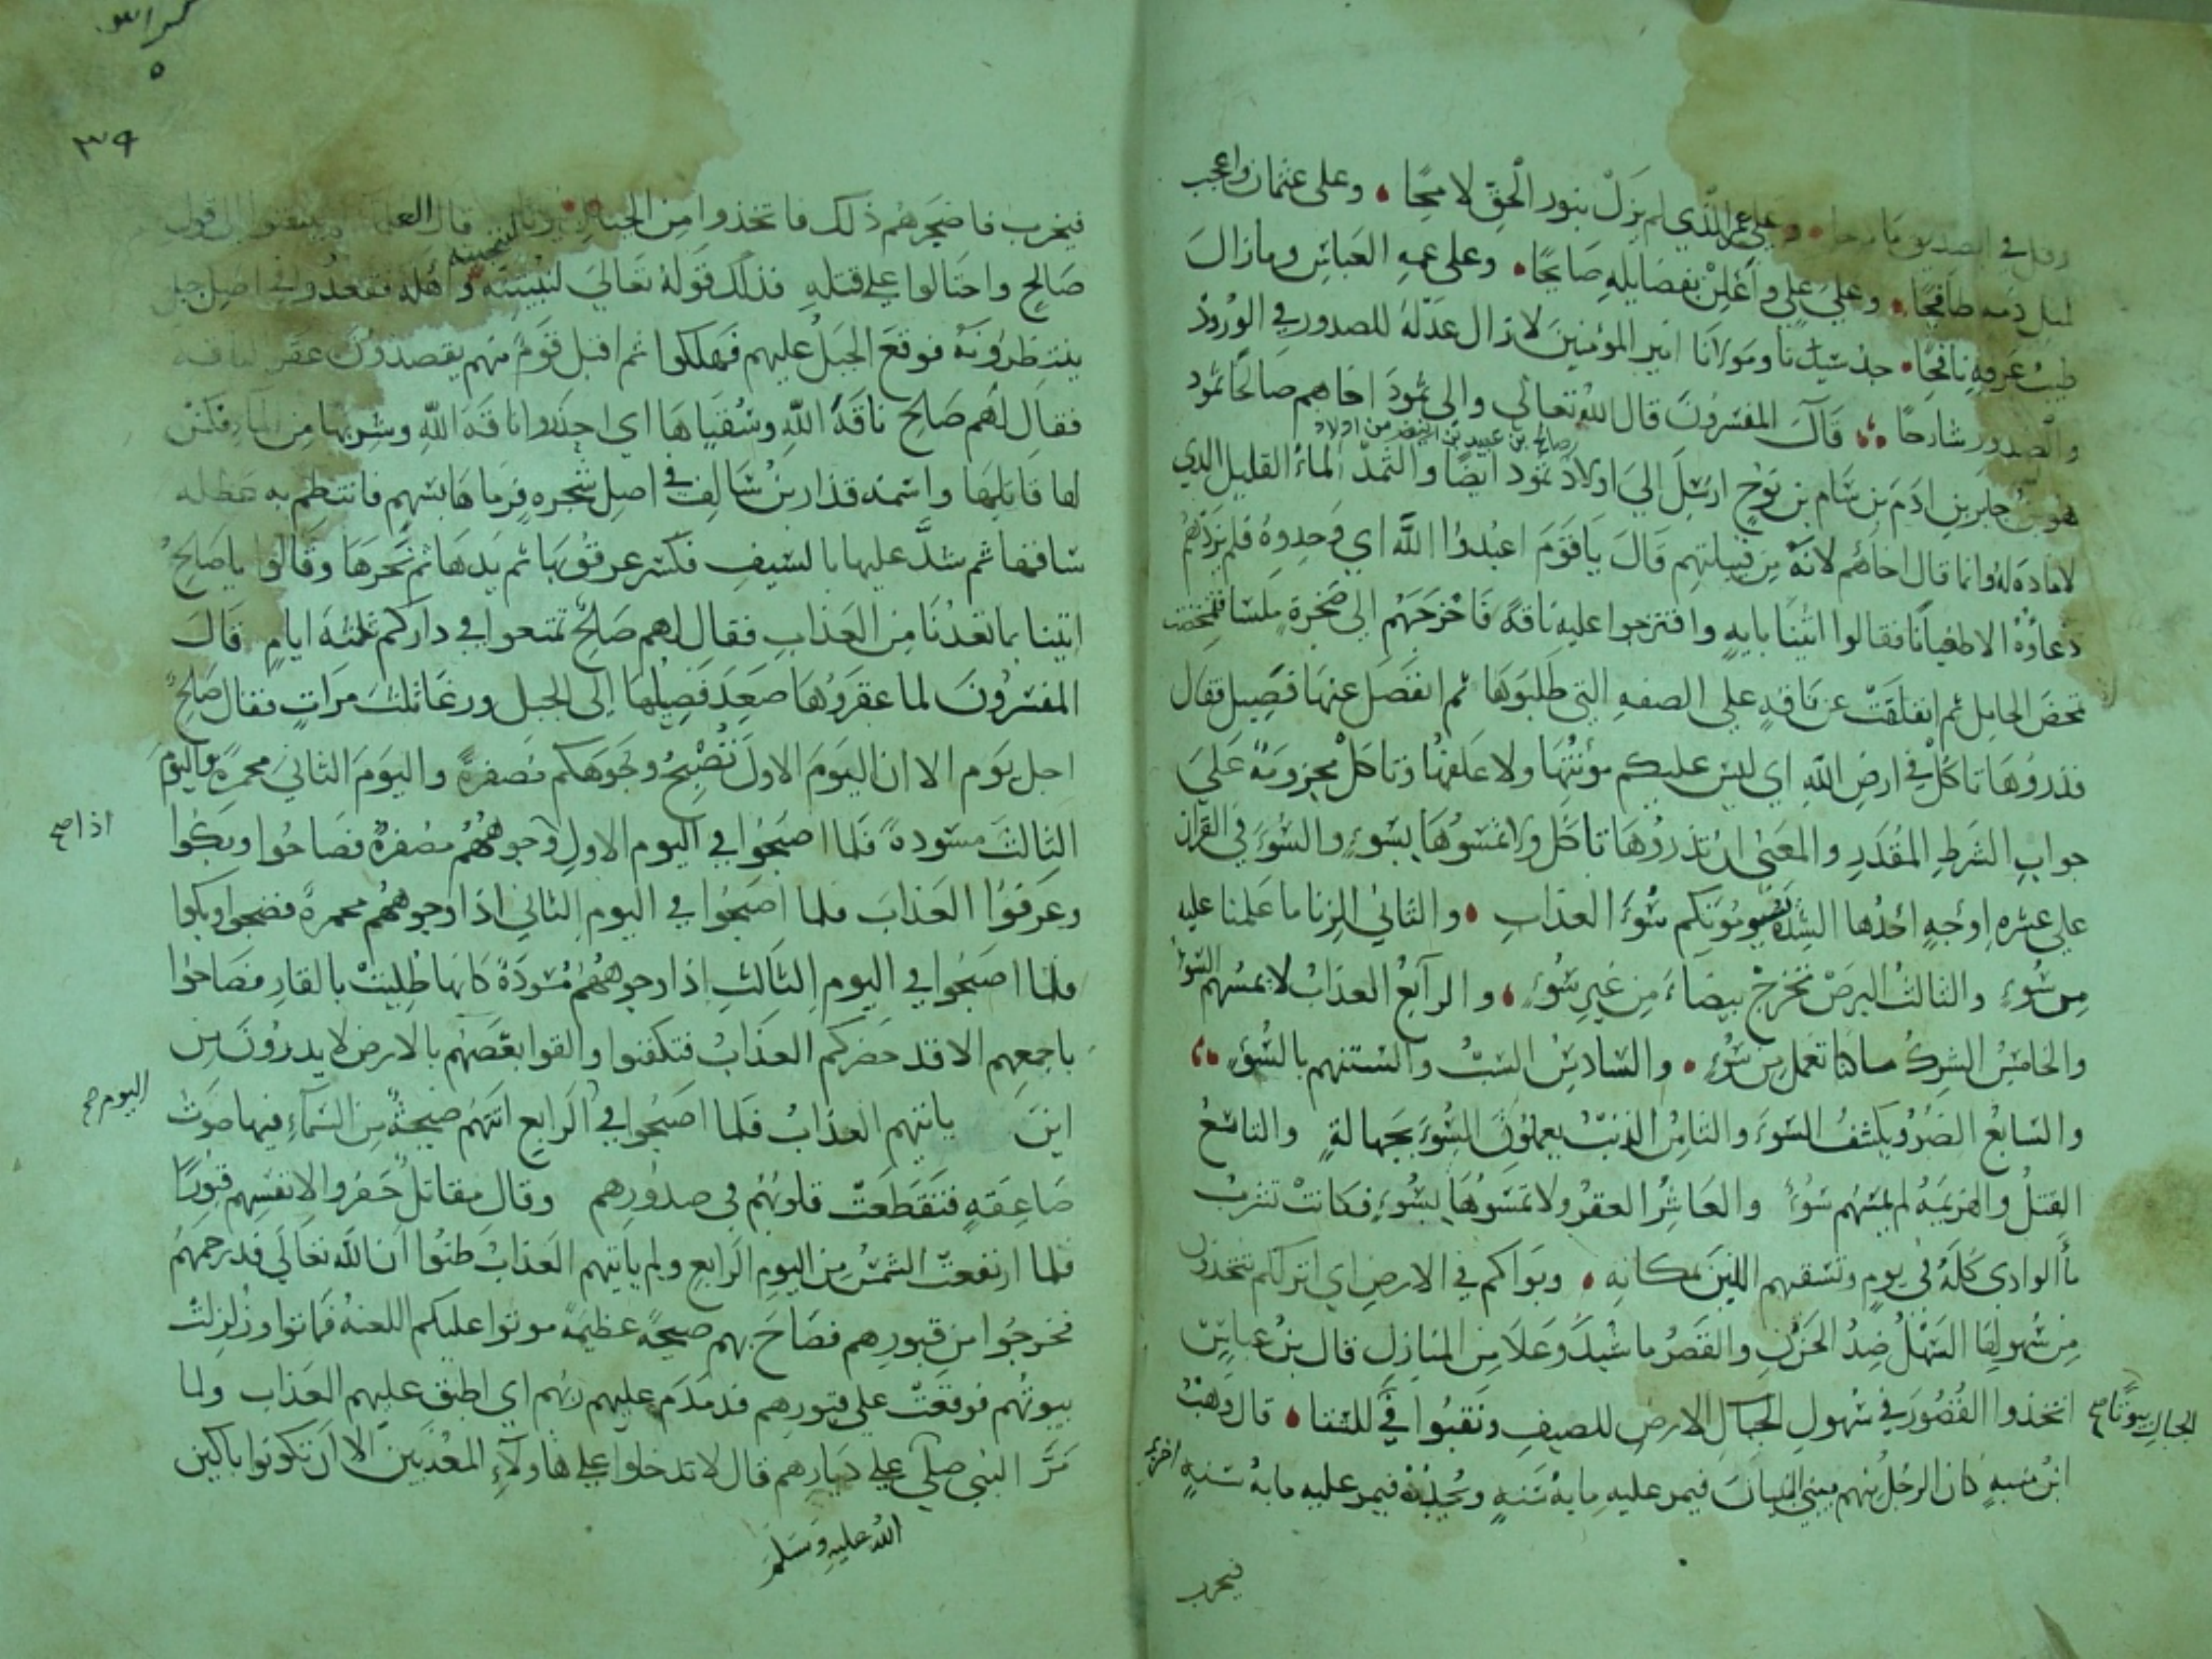 وقل في الصديق مادحا وعلى عمر الذي لم يزل بنور الحق لامحًا وعلى عثمان واعجب
لمثل دمه طافحًا وعلى علي وأعلن بفضايله صايحًا وعلى عمه العباس وما زال
طيب عرفه نافحًا جد سيدنا ومولانا امير المؤمنين لا زال عدله للصدور في الورود
والصدور شارحًا قال المفسرون قال الله تعالى والى ثمود اخاهم صالحًا ثمود
صالح بن عبيد بن اولاد
هو بن جابر بن ادم بن سام بن نوح ارسل الى اولاد ثمود ايضًا والثمد الماء القليل الذي
لا مادة له وانما قال اخاهم لانه من قبيلتهم قال يا قوم اعبدوا الله اي وحدوه فلم يزدهم
دعاؤه الا طغيانًا فقالوا ائتنا بايه واقترحوا عليه ناقة فاخرجهم الى صخرة ملسا فتمخضت
تمخض الحامل ثم انفلقت عن ناقه على الصفه التي طلبوها ثم انفصل عنها فصيل فقال
فذروها تاكل في ارض الله اي ليس عليكم مؤنتها ولا علفها وتاكل مجزومة على
جواب الشرط المقدر والمعنى ان تذروها تاكل ولا تمسوها بسوء والسوء في القران
على عشره اوجه احدها الشدة يسومونكم سوء العذاب والثاني الزنا ما علمنا عليه
من سوء والثالث البرص تخرج بيضاء من غير سوء والرابع العذاب لا يمسهم السوء
والخامس الشرك ما كنا نعمل من سوء والسادس السب والسنتهم بالسوء
والسابع الضر ويكشف السوء والثامن الذنب يعملون السوء بجهالة والتاسع
القتل والهزيمة لم يمسهم سوء والعاشر العقر ولا تمسوها بسوء فكانت تشرب
ماء الوادي كله في يوم وتسقيهم اللبن مكانه وبواكم في الارض اي انزلكم تتخذون
من سهولها السهل ضد الحزن والقصر ما شيد وعلا من المنازل قال بن عباس
اتخذوا القصور في سهول الارض للصيف ونقبوا في للشتا قال وهب
الجبال بيوتا صح
ابن منبه كان الرجل منهم يبني البنيان فيمر عليه مايه سنه فيخرب ويجدده فيمر عليه مايه سنه اخرى
فيخرب
٣٩
فيخرب فاضجرهم ذلك فاتخذوا من الجبال بيوتا قال العلما
صالح واحتالوا على قتله فذلك قوله تعالى لنبيتنه واهله فقعدوا في اصل جبل
ينتظرونه فوقع الجبل عليهم فهلكوا ثم اقبل قوم منهم يقصدون عقر الناقه
فقال لهم صالح ناقة الله وسقياها اي احذروا ناقة الله وشربها من الماء فكمن
لها قاتلها واسمه قذار بن سالف في اصل شجره فرماها بسهم فانتظم به عضله
ساقها ثم شد عليها بالسيف فكسر عرقوبها ثم يدها ثم نحرها وقالوا يا صالح
ائتنا بما تعدنا من العذاب فقال لهم صالح تمتعوا في داركم ثلثة ايام قال
المفسرون لما عقروها صعد فصيلها الى الجبل ورغا ثلث مرات فقال صالح
اجل يوم الا ان اليوم الاول تصبح وجوهكم مصفرة واليوم الثاني محمرة واليوم
الثالث مسودة فلما اصبحوا في اليوم الاول وجوههم مصفرة فصاحوا وبكوا
اذا صح
وعرفوا العذاب فلما اصبحوا في اليوم الثاني اذا وجوههم محمرة فضجوا وبكوا
فلما اصبحوا في اليوم الثالث اذا وجوههم مسودة كانها طليت بالقار فصاحوا
باجمعهم الا قد حضركم العذاب فتكفنوا والقوا بعضهم بالارض لا يدرون من
اين ياتيهم العذاب فلما اصبحوا في الرابع اتتهم صيحة من السماء فيها صوت
اليوم صح
صاعقه فتقطعت قلوبهم في صدورهم وقال مقاتل حفروا لانفسهم قبورًا
فلما ارتفعت الشمس من اليوم الرابع ولم ياتيهم العذاب ظنوا ان الله تعالى قد رحمهم
فخرجوا من قبورهم فصاح بهم صيحة عظيمة موتوا عليكم اللعنة فماتوا وزلزلت
بيوتهم فوقعت على قبورهم فدمدم عليهم ربهم اي اطبق عليهم العذاب ولما
مر النبي صلى على ديارهم قال لا تدخلوا على هاولاء المعذبين الا ان تكونوا باكين
الله عليه وسلم